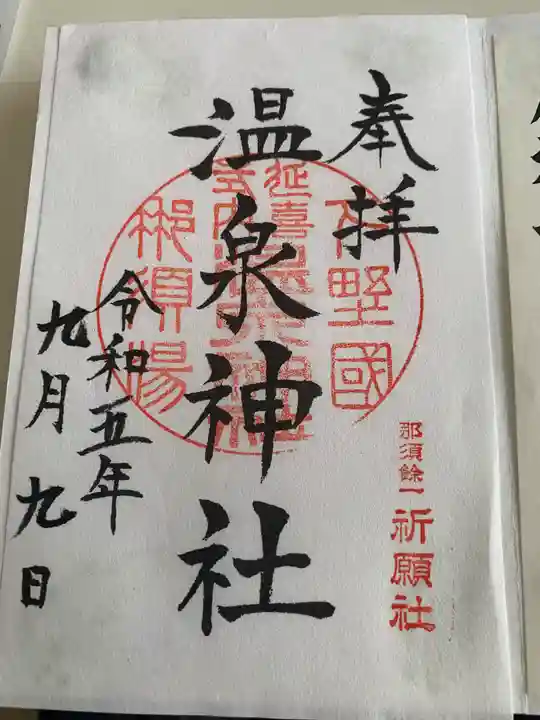 奉拝
下野國
那須餘一
祈願社
延喜
式内
温泉神社
那須湯
令和五年
九月九日